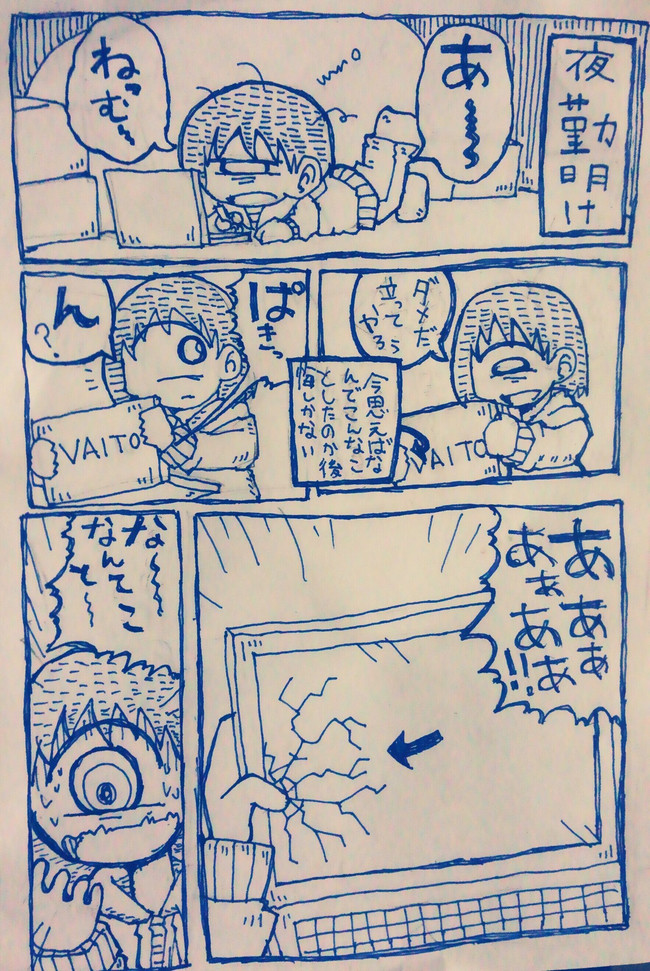 夜勤明け
あ～～
ねっむ～
ダメだ
立って
やろぅ
VAITO
今思えばな
んでこんなこ
としたのか後
悔しかない
ぱきっ
ん
?
VAITO
あああ
あぁああ
!!
な～～
なんてこ
と～